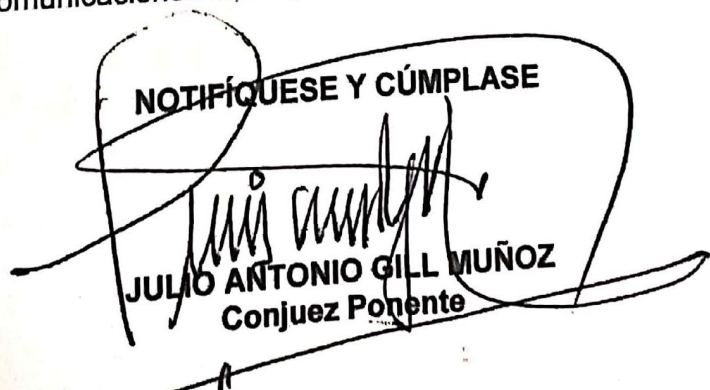 NOTIFÍQUESE Y CÚMPLASE
JULIO ANTONIO GILL MUÑOZ
Conjuez Ponente